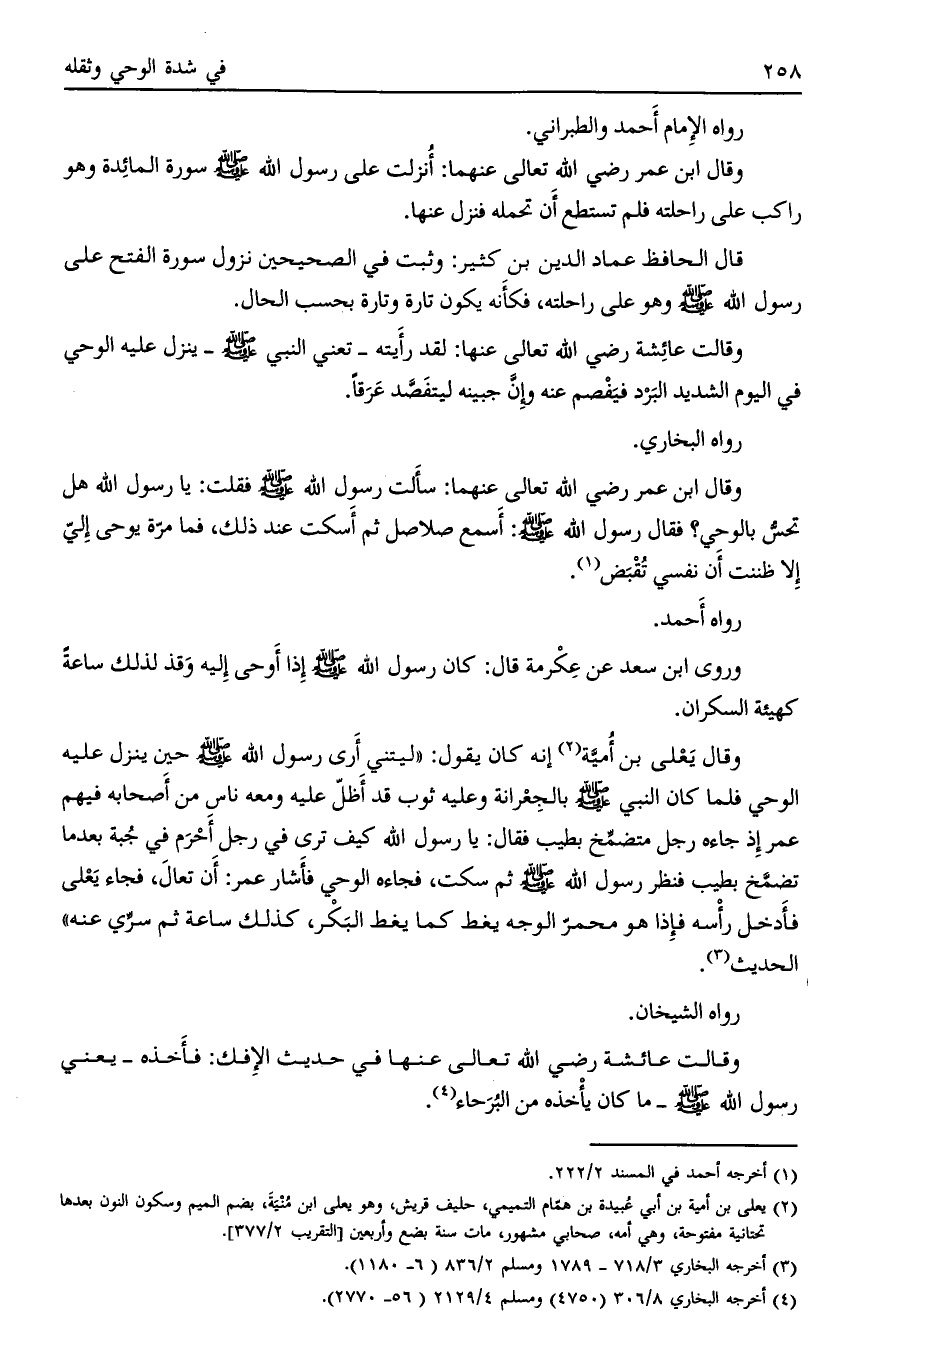 ٢٥٨ في شدة الوحي وثقله
رواه الإمام أَحمد والطبراني.
وقال ابن عمر رضي الله تعالى عنهما: أُنزلت على رسول الله ﷺ سورة المائِدة وهو
راكب على راحلته فلم تستطع أَن تحمله فنزل عنها.
قال الحافظ عماد الدين بن كثير: وثبت في الصحيحين نزول سورة الفتح على
رسول الله ﷺ وهو على راحلته، فكأَنه يكون تارة وتارة بحسب الحال.
وقالت عائِشة رضي الله تعالى عنها: لقد رأَيته ـ تعني النبي ﷺ ـ ينزل عليه الوحي
في اليوم الشديد البَرْد فيَفْصم عنه وإِنَّ جبينه ليتفَصَّد عَرَقاً.
رواه البخاري.
وقال ابن عمر رضي الله تعالى عنهما: سأَلت رسول الله ﷺ فقلت: يا رسول الله هل
تحسُّ بالوحي؟ فقال رسول الله ﷺ: أَسمع صلاصل ثم أَسكت عند ذلك، فما مرّة يوحى إِليّ
إِلا ظننت أَن نفسي تُقْبَض(١).
رواه أَحمد.
وروى ابن سعد عن عِكْرمة قال: كان رسول الله ﷺ إِذا أَوحى إِليه وَقذ لذلك ساعةً
كهيئة السكران.
وقال يَعْلى بن أُميَّة(٢) إنه كان يقول: «ليتني أَرى رسول الله ﷺ حين ينزل عليه
الوحي فلما كان النبي ﷺ بالجِعْرانة وعليه ثوب قد أَظلّ عليه ومعه ناس من أَصحابه فيهم
عمر إِذ جاءه رجل متضمِّخ بطيب فقال: يا رسول الله كيف ترى في رجل أَحْرَم في جُبة بعدما
تضمَّخ بطيب فنظر رسول الله ﷺ ثم سكت، فجاءه الوحي فأَشار عمر: أَن تعالَ، فجاء يَعْلى
فأَدخل رأْسه فإِذا هو محمرّ الوجه يغط كما يغط البَكْر، كذلك ساعة ثم سرِّي عنه»
الحديث(٣).
رواه الشيخان.
وقالت عائشة رضي الله تعالى عنها في حديث الإفك: فأَخذه ـ يعني
رسول الله ﷺ ـ ما كان يأْخذه من البُرَحاء(٤).
(١) أخرجه أحمد في المسند ٢٢٢/٢.
(٢) يعلى بن أمية بن أبي عُبيدة بن همّام التميمي، حليف قريش، وهو يعلى ابن مُنْيَة، بضم الميم وسكون النون بعدها
تحتانية مفتوحة، وهي أمه، صحابي مشهور، مات سنة بضع وأربعين [التقريب ٣٧٧/٢].
(٣) أخرجه البخاري ٧١٨/٣ - ١٧٨٩ ومسلم ٨٣٦/٢ ( ٦- ١١٨٠).
(٤) أخرجه البخاري ٣٠٦/٨ (٤٧٥٠) ومسلم ٢١٢٩/٤ ( ٥٦- ٢٧٧٠).